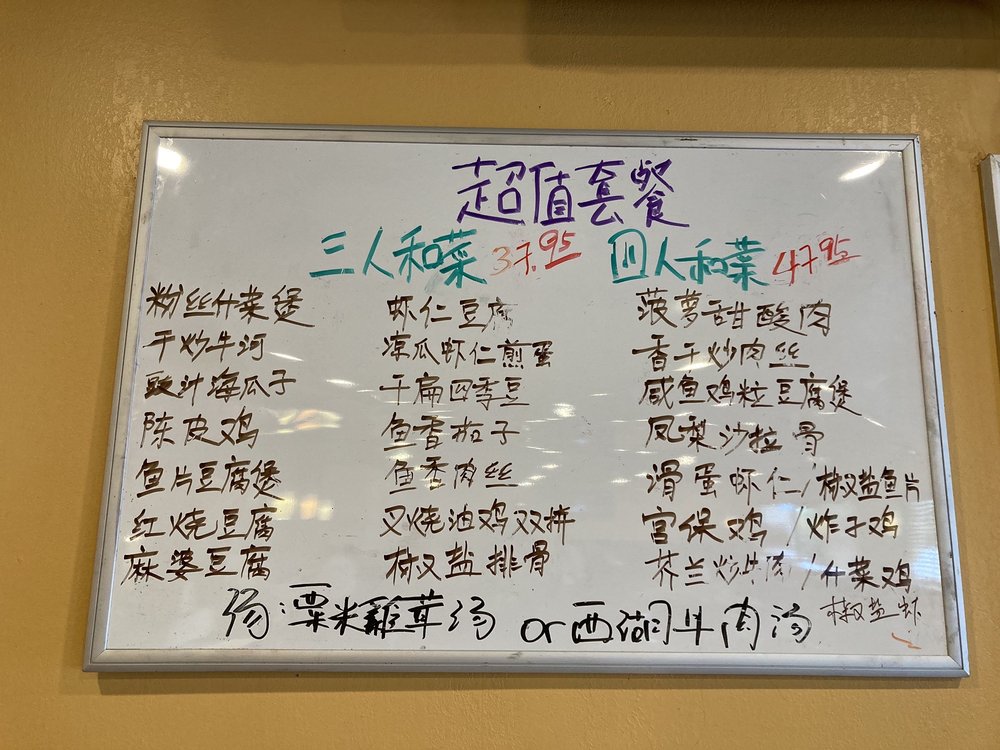 超值套餐
三人和菜 37.95 四人和菜 47.95
粉丝什菜煲 虾仁豆腐 菠萝甜酸肉
干炒牛河 凉瓜虾仁煎蛋 香干炒肉丝
豉汁海瓜子 干扁四季豆 咸鱼鸡粒豆腐煲
陈皮鸡 鱼香茄子 凤梨沙拉骨
鱼片豆腐煲 鱼香肉丝 滑蛋虾仁/椒盐鱼片
红烧豆腐 叉烧油鸡双拼 宫保鸡/炸子鸡
麻婆豆腐 椒盐排骨 芥兰炒牛肉/什菜鸡
椒盐虾
汤:粟米雞茸汤 or 西湖牛肉汤